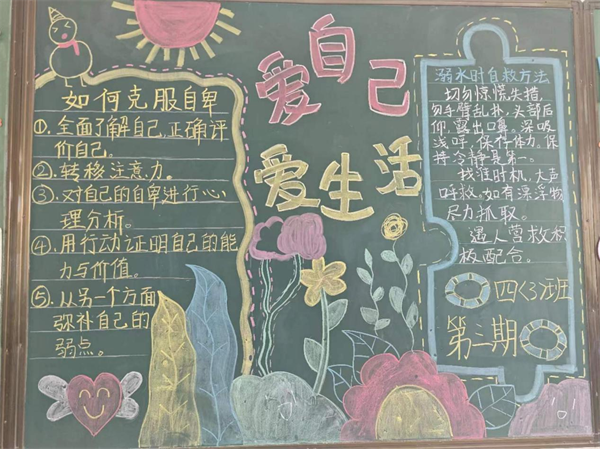 如何克服自卑
①.全面了解自己,正确评
价自己。
②.转移注意力。
③.对自己的自卑进行心
理分析。
④.用行动证明自己的能
力与价值。
⑤.从另一个方面
弥补自己的
弱点。
爱自己
爱生活
溺水时自救方法
切勿惊慌失措,
勿手臂乱扑,头部后
仰,露出口鼻。深吸
浅呼,保存体力。保
持冷静是第一。
找准时机,大声
呼救。如有漂浮物
尽力抓取。
遇人营救积
极配合。
四<3>班
第三期